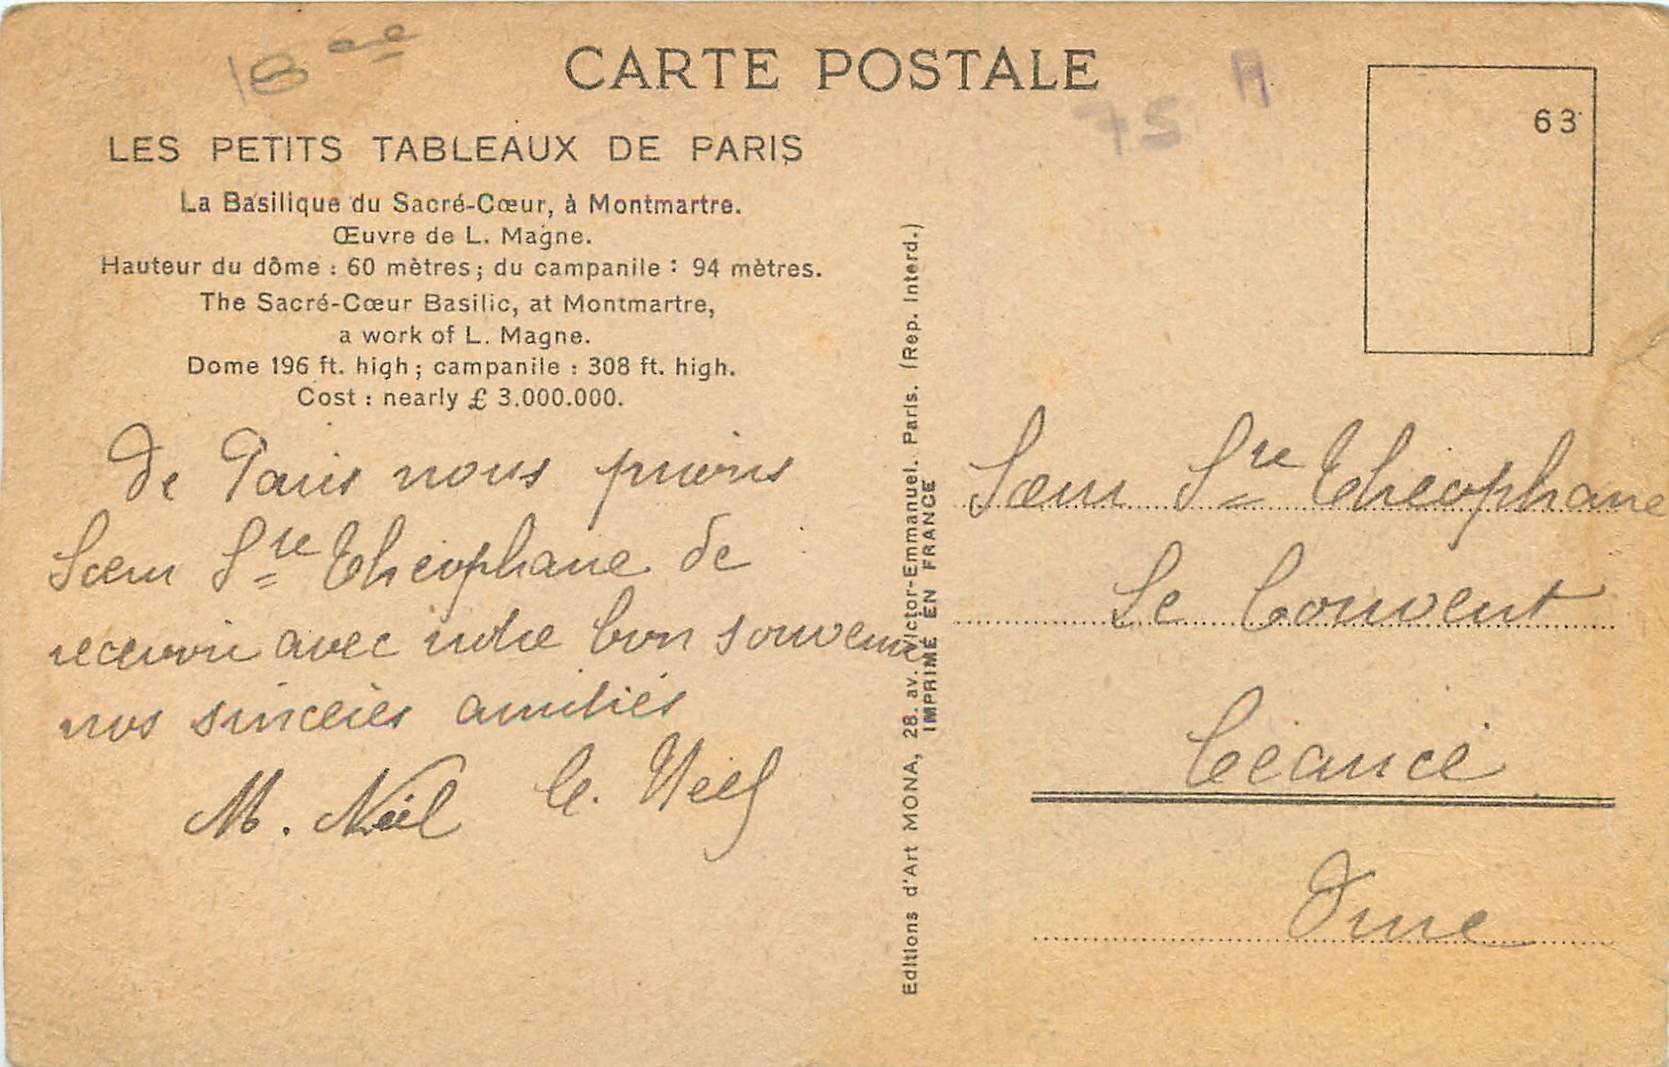 18ee
CARTE POSTALE
75 A
63
LES PETITS TABLEAUX DE PARIS
La Basilique du Sacré-Cœur, à Montmartre.
Œuvre de L. Magne.
Hauteur du dôme : 60 mètres; du campanile : 94 mètres.
The Sacré-Cœur Basilic, at Montmartre,
a work of L. Magne.
Dome 196 ft. high; campanile : 308 ft. high.
Cost : nearly £ 3.000.000.
de Paris nous prions
Sœur Ste Théophane de
recevoir avec notre bon souvenir
nos sincères amitiés
M.
Editions d'Art MONA, 28. av. Victor-Emmanuel. Paris. (Rep. Interd.)
IMPRIMÉ EN FRANCE
Sœur Ste Théophane
Le Couvent
Céaucé
Orne